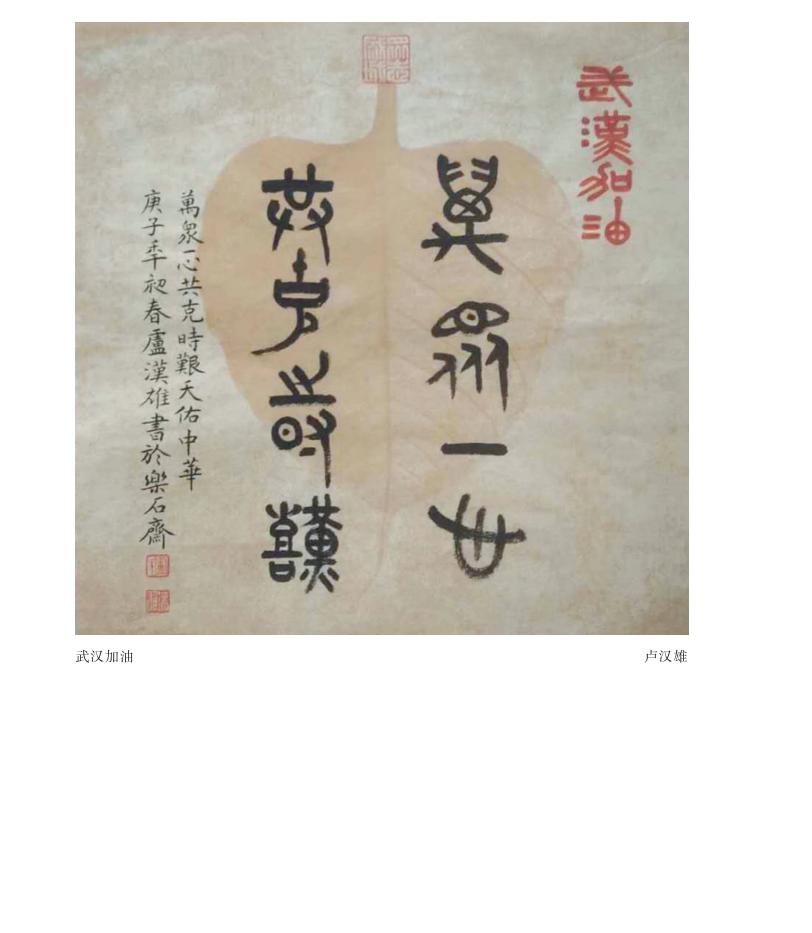 武漢加油
萬眾一心
共克時艱
萬眾一心共克時艱天佑中華
庚子年初春盧漢雄書於樂石齋
武汉加油
卢汉雄